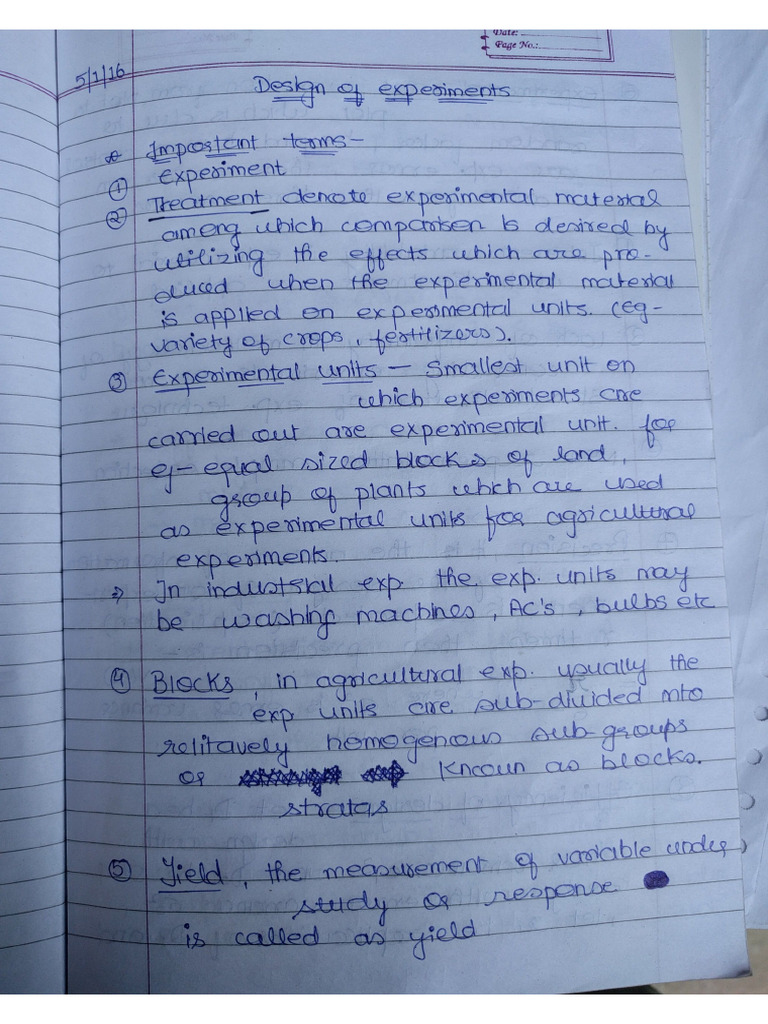 Date:
Page No.:
5/1/16
Design of experiments
* Important terms-
① experiment
② Treatment denote experimental material
among which comparison is desired by
utilizing the effects which are pro-
duced when the experimental material
is applied on experimental units. (eg-
variety of crops, fertilizers).
③ Experimental units - Smallest unit on
which experiments are
carried out are experimental unit. for
eg- equal sized blocks of land,
group of plants which are used
as experimental units for agricultural
experiments.
⇒ In industrial exp. the exp. units may
be washing machines, AC's, bulbs etc
④ Blocks, in agricultural exp. usually the
exp units are sub-divided into
relitavely homogenous sub-groups
or known as blocks.
stratas
⑤ Yield, the measurement of variable under
study or response
is called as yield